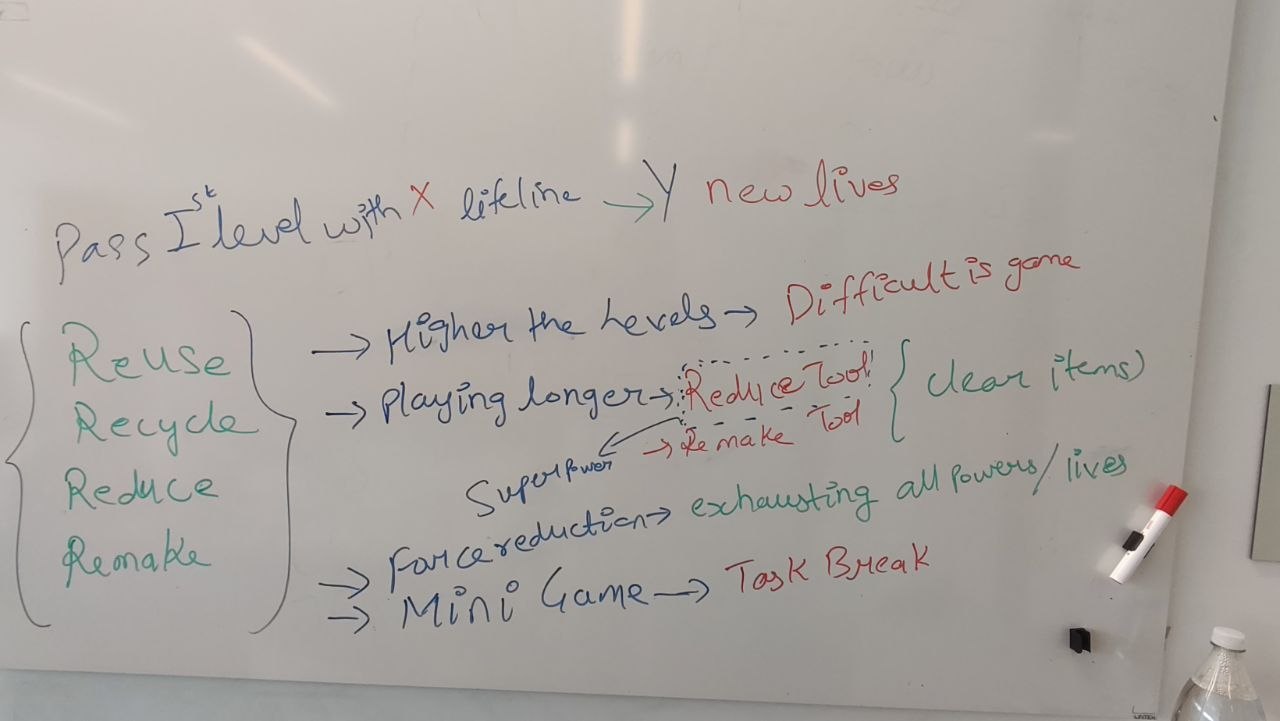 Pass Ist level with X lifeline → Y new lives
Reuse
Recycle
Reduce
Remake
→ Higher the Levels → Difficult is game
→ Playing longer → Reduce Tool
→ Remake Tool
clear items)
Superpower
→ Force reduction → exhausting all powers/lives
→ Mini Game → Task Break